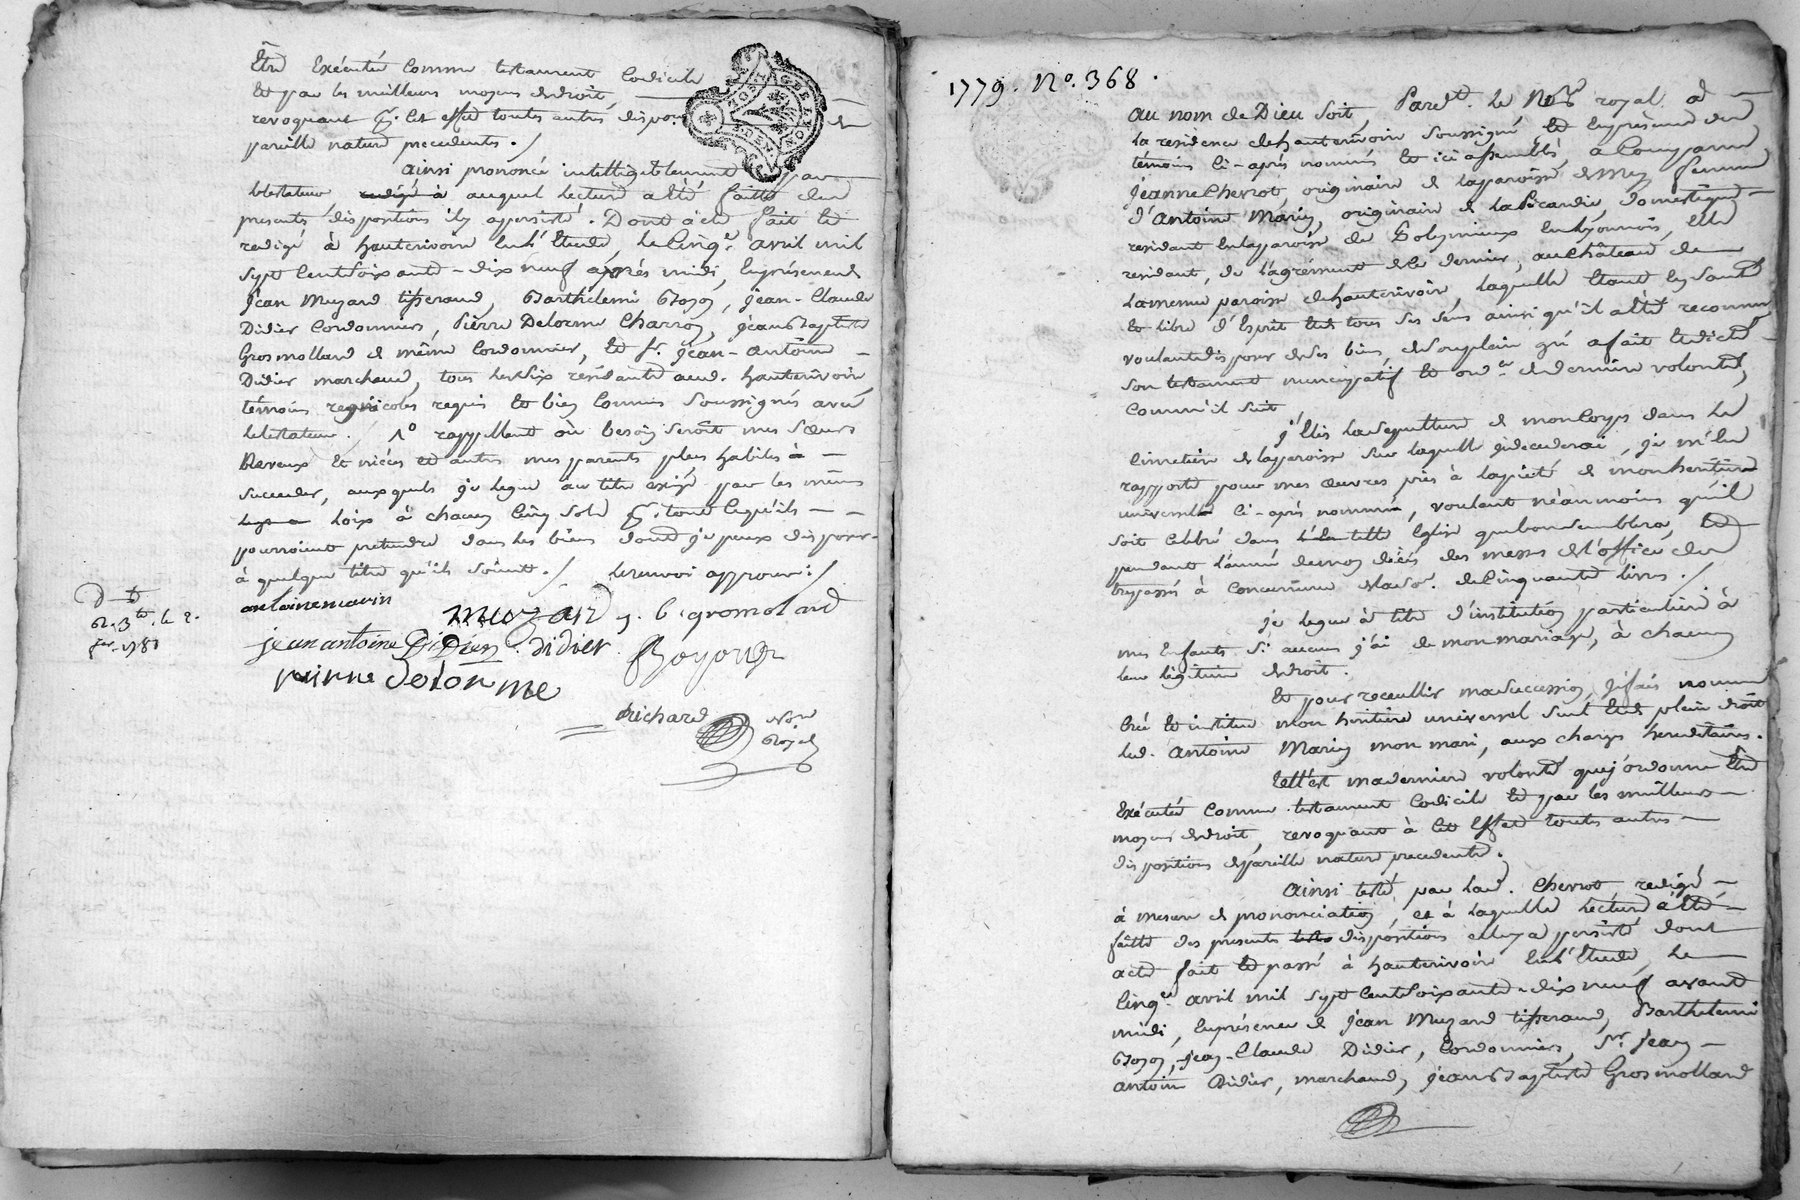 Etre Exécutté Comme testament Codicile
Et par les meilleurs moyens de droit,
revoquant pr. Cet effet toutes autres dispo
pareille nature precedentes ./
Ainsi prononcé intelligiblement par
le testateur, redigé à auquel lecture a été faitte des
presents dispositions il y a persisté. Dont acte fait et
redigé à hauterivoire En l'Etude, le Cinqe. avril mil
sept Cent Soixante-dix neuf après midi, En présence de
Jean Muzard tisserand, Barthélemi Boyon, Jean-Claude
Didier Cordonniers, Pierre Delorme Charron, Jean Baptiste
Grosmollard de même Cordonnier, et sr. Jean-Antoine
Didier marchand, tous les six résidants aud. hauterivoir,
témoins regnicoles requis Et bien Connus Soussignés avec
le testateur. / 1o rappellant où besoin seroit mes sœurs
Neveux Et nièces et autres mes parents plus habiles à
succeder, auxquels je legue au titre exigé par les mêmes
loix à chacun Cinq sols pr. tout ce qu'ils
pourroient prétendre dans les biens dont je peux disposer
à quelque titre qu'ils soient ./ le renvoi approuvé /
antoine marin
muzard j. b. gromolard
jean antoine Didier didier Boyon
pierre delorme
Richard Nore
Royal
HOST G DE LYON
1779. No. 368.
Au nom de Dieu Soit, Pardt. Le Nore royal à
la residence de hauterivoire soussigné Et En présence des
témoins Ci-après nommés Et ici assemblés, a Comparu
Jeanne Cherrot, originaire de la paroisse de femme
d'Antoine Marin, originaire de la Picardie, domestique
residant En la paroisse de Polymieux En Lyonnois, Elle
residant, de l'agrément de Ce dernier, au Château de
la meme paroisse de hauterivoir, laquelle Etant En santé
Et libre d'Esprit Et de tous ses sens ainsi qu'il a été reconnu
voulant disposer de Ses biens, de Son plein gré a fait Et dicté
son testament nuncupatif Et ordre de derniere volonté,
Comm'il suit
j'Elis la sepulture de mon Corps dans le
Cimetière de la paroisse sur laquelle je décederai, je m'En
rapporte pour mes œuvres pies à la piété de mon héritier
universel Ci-après nommé, voulant néanmoins qu'il
soit Célébré dans telle Eglise que bon semblera, Et
pendant l'année de mon décés des messes de l'office des
trepassés à Concurrence de la so. de Cinquante livres ./
je legue à titre d'institution particulière à
mes Enfants si aucuns j'ai de mon mariage, à chacun
leur légitime de droit.
Et pour receuillir ma succession, je fais nomme
Crée Et institue mon héritier universel seul Et de plein droit
led. Antoine Marin mon mari, aux charges héréditaires.
telle est ma derniere volonté que j'ordonne Etre
Exécutée Comme testament Codicile Et par les meilleurs
moyens de droit, revoquant à Cet Effet toutes autres
dispositions de pareille nature precedentes.
Ainsi testé par lad. Cherrot, redigé
à mesure de prononciation, et à laquelle lecture a été
faitte des presents dispositions elle y a persisté dont
acte fait Et passé à hauterivoir En l'Etude, le
Cinqe. avril mil sept Cent Soixante-dix neuf avant
midi, En présence de Jean Muzard tisserand, Barthelemi
Boyon, Jean-Claude Didier, Cordonniers, Sr. Jean
Antoine Didier, marchand, Jean Baptiste Grosmollard